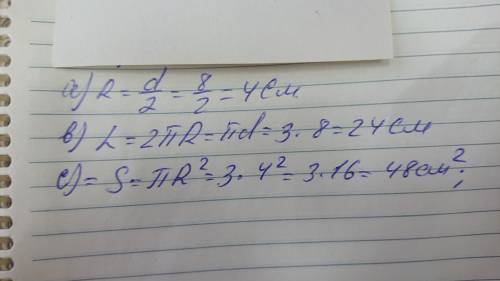 а) R = d/2 = 8/2 = 4 см
в) L = 2πR = πd = 3 · 8 = 24 см
с) = S = πR² = 3 · 4² = 3 · 16 = 48 см²;